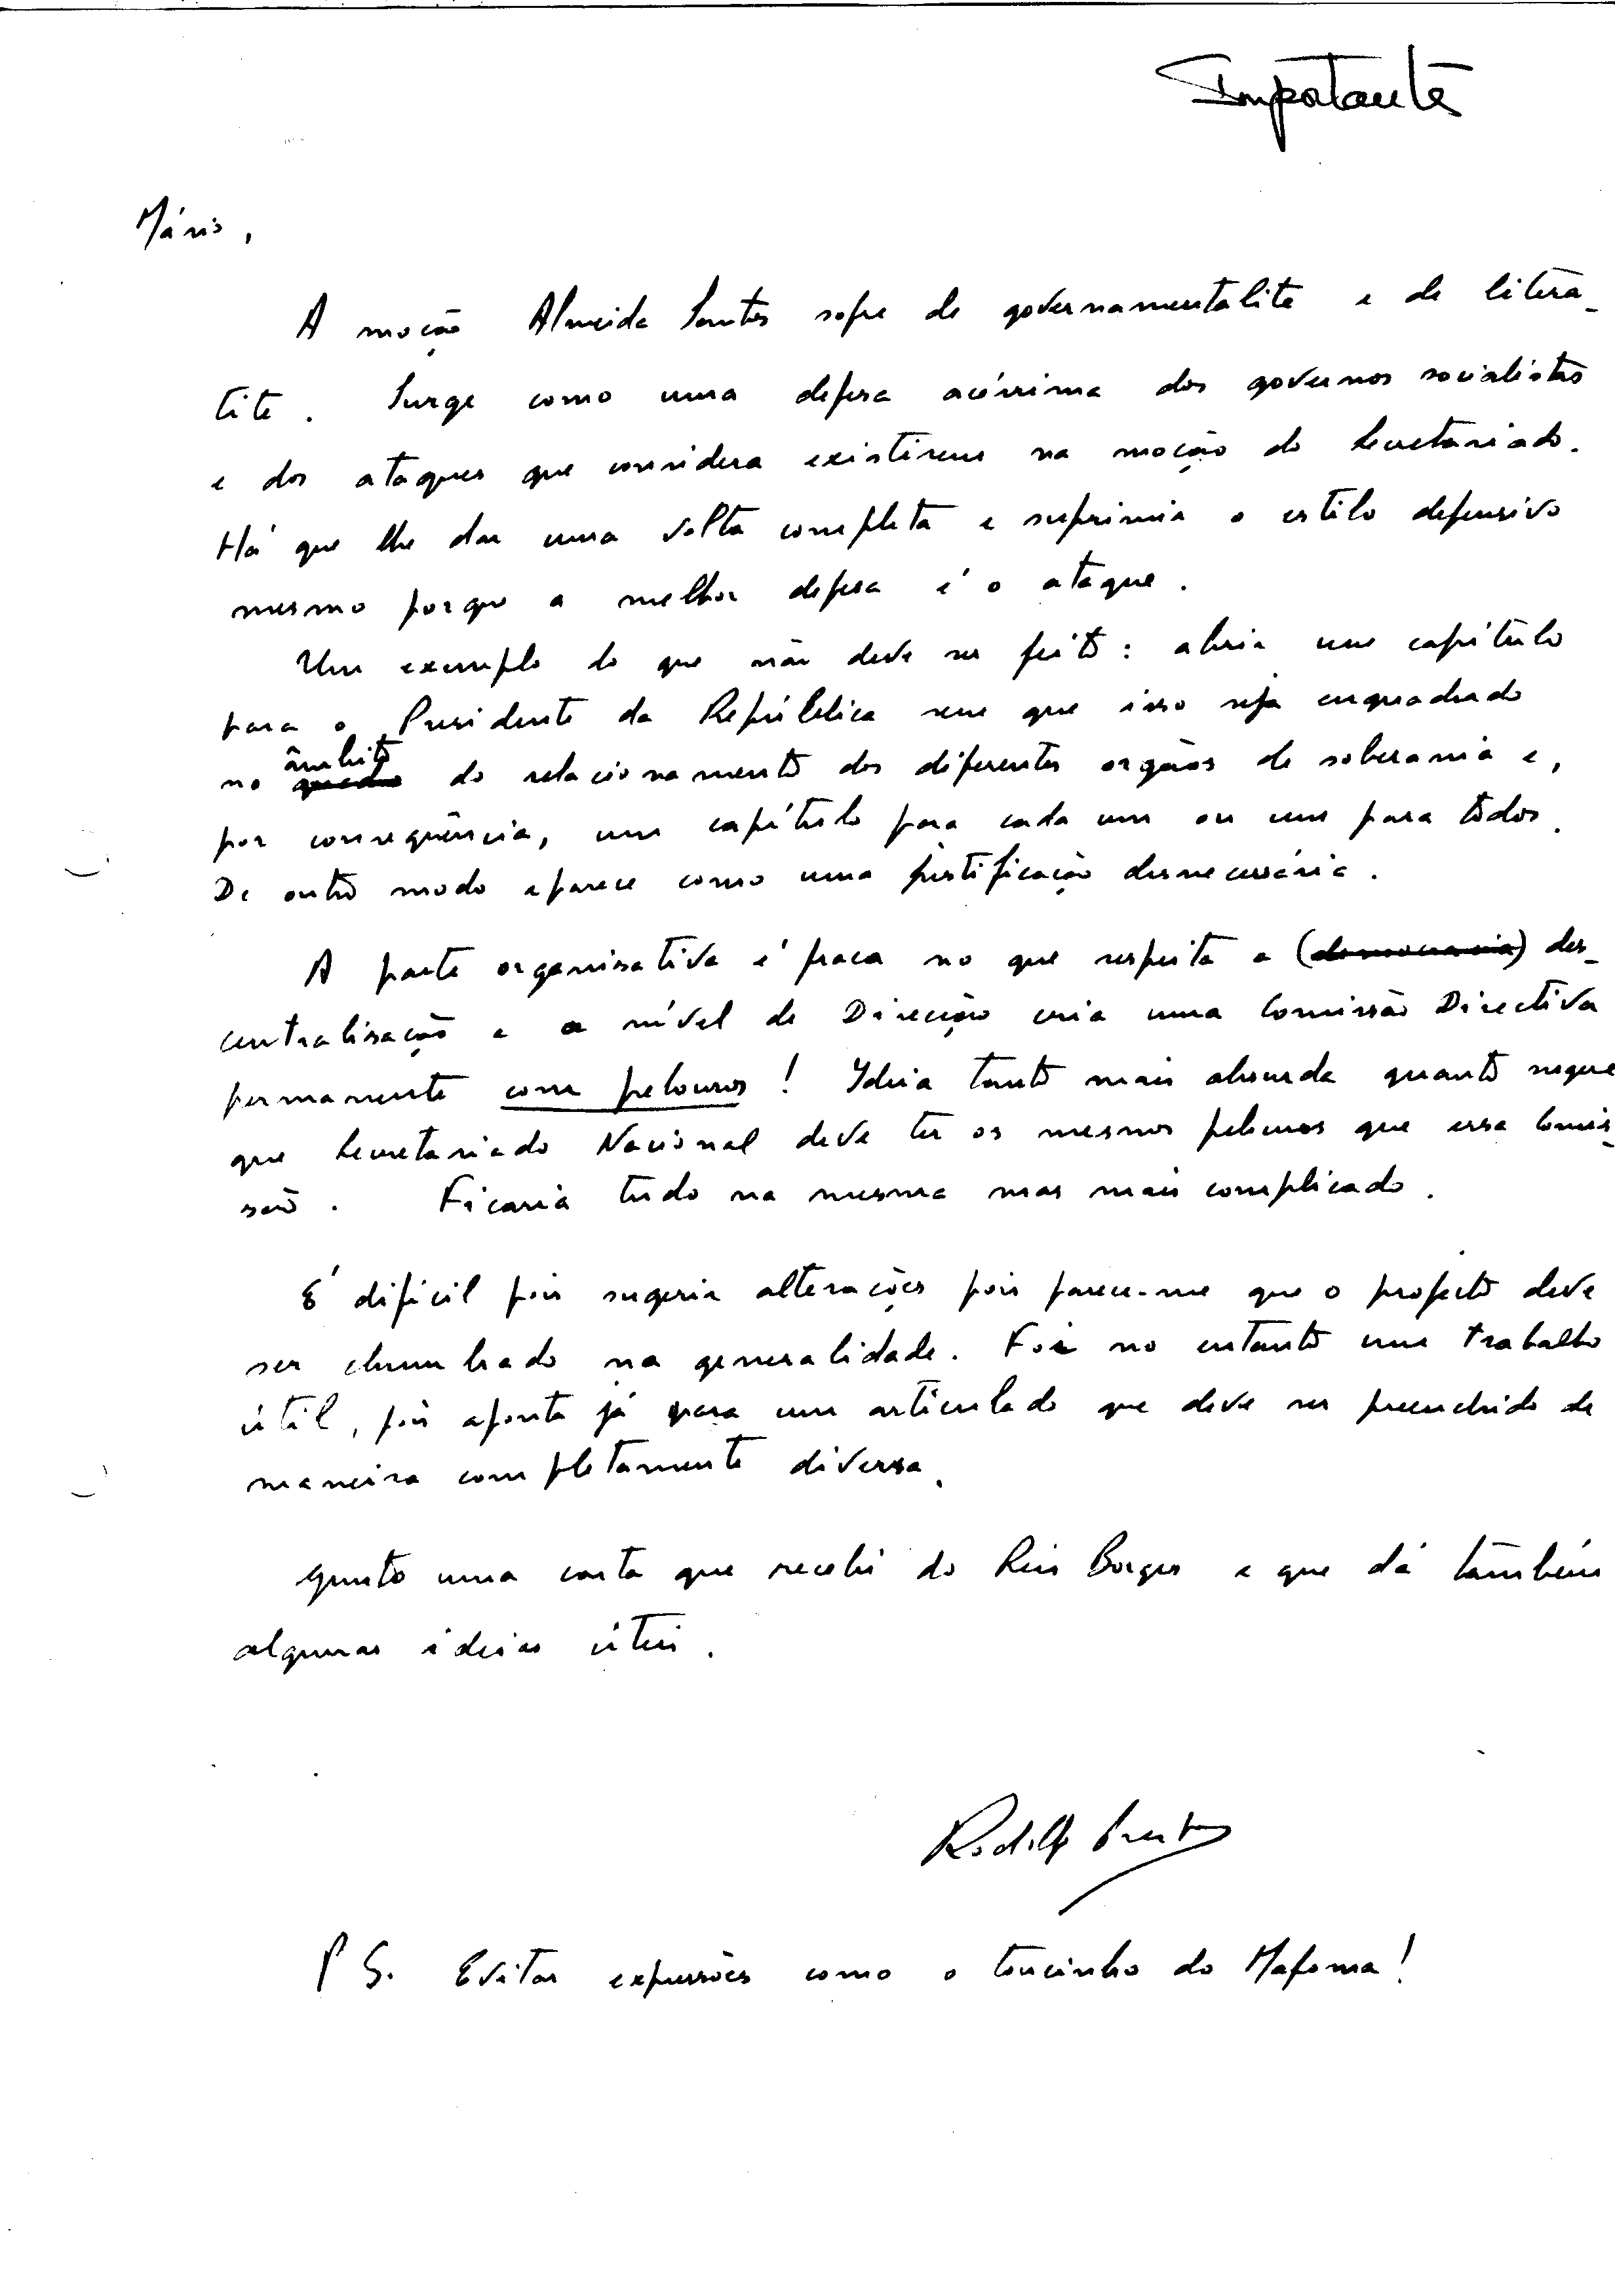 Importante
Mário,
A moção Almeida Santos sofre de governamentalite e de litera-
tite. Surge como uma defesa acérrima dos governos socialistas
e dos ataques que considera existirem na moção do Secretariado.
Há que lhe dar uma volta completa e suprimir o estilo defensivo
mesmo porque a melhor defesa é o ataque.
Um exemplo do que não deve ser feito: abrir um capítulo
para o Presidente da República sem que isso seja enquadrado
no âmbito do relacionamento dos diferentes orgãos de soberania e,
por consequência, um capítulo para cada um ou um para todos.
De outro modo aparece como uma justificação desnecessária.
A parte organisativa é fraca no que respeita a (democracia) des-
centralisação e a nível de Direcção cria uma Comissão Directiva
permanente com pelouros! Ideia tanto mais absurda quanto sugere
que Secretariado Nacional deve ter os mesmos pelouros que essa Comis-
são. Ficaria tudo na mesma mas mais complicado.
É difícil pois sugerir alterações pois parece-me que o projecto deve
ser chumbado na generalidade. Foi no entanto um trabalho
útil, pois aponta já para um articulado que deve ser preenchido de
maneira completamente diversa.
Junto uma carta que recebi do Reis Borges e que dá também
algumas ideias úteis.
PS. Evitar expressões como o toucinho do Mafoma!